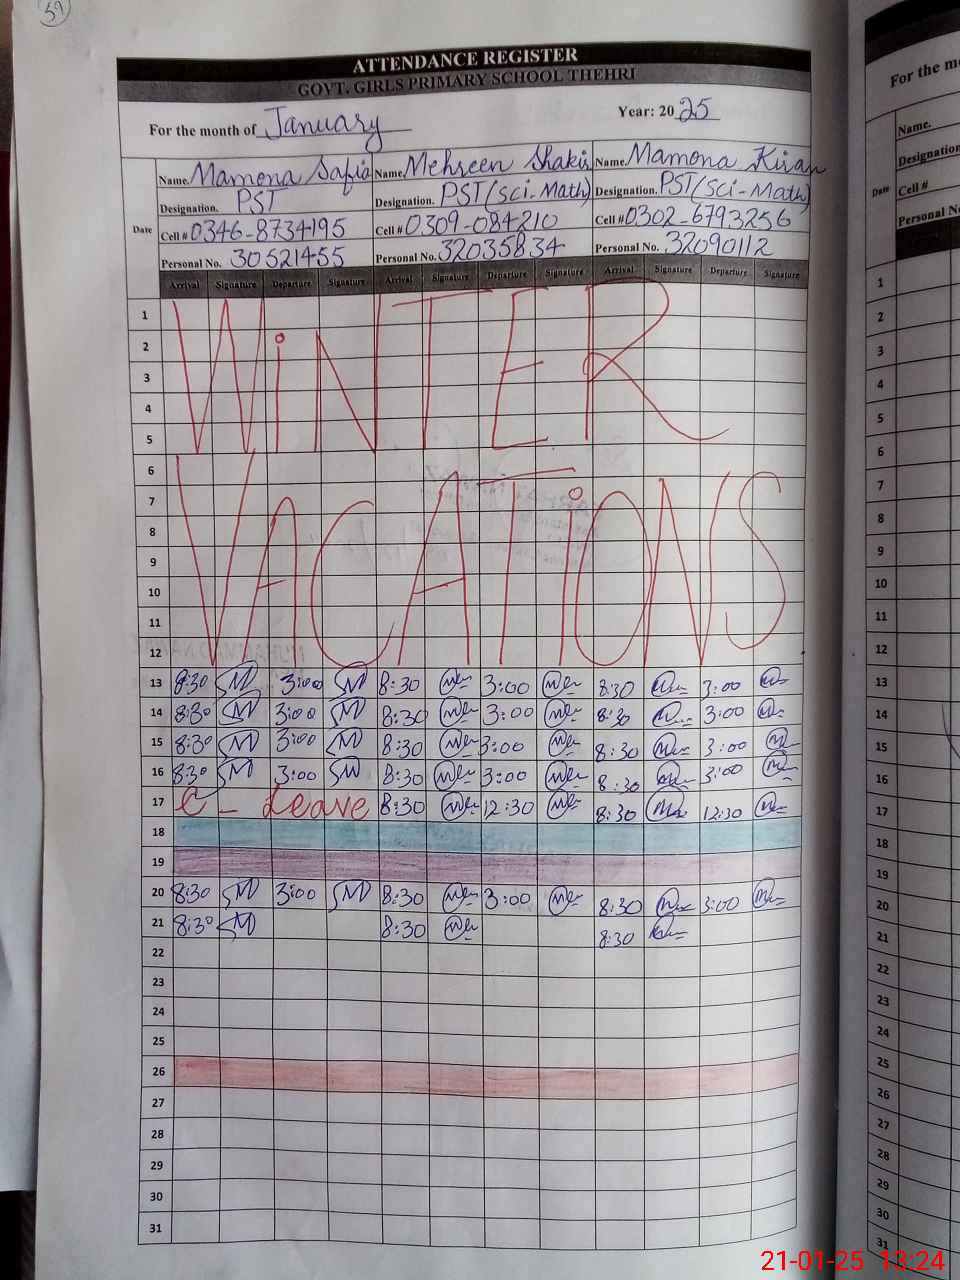 59
ATTENDANCE REGISTER
GOVT. GIRLS PRIMARY SCHOOL THEHRI
For the month of January Year: 2025
Date
Name. Mamona Safia Name. Mehreen Shakir Name. Mamona Kiran
Designation. PST Designation. PST(Sci-Math) Designation. PST(Sci-Math)
Cell # 0346-8734195 Cell # 0309-084210 Cell # 0302-6793256
Personal No. 30521455 Personal No. 32035834 Personal No. 32090112
Arrival Signature Departure Signature Arrival Signature Departure Signature Arrival Signature Departure Signature
1
2
3
4
5
WINTER
6
7
8
9
10
11
12
VACATIONS
13 8:30 SM 3:00 SM 8:30 3:00 8:30 3:00
14 8:30 SM 3:00 SM 8:30 3:00 8:30 3:00
15 8:30 SM 3:00 SM 8:30 3:00 8:30 3:00
16 8:30 SM 3:00 SM 8:30 3:00 8:30 3:00
17 C - Leave 8:30 12:30 8:30 12:30
18
19
20 8:30 SM 3:00 SM 8:30 3:00 8:30 3:00
21 8:30 SM 8:30 8:30
22
23
24
25
26
27
28
29
30
31
For the mo
Name.
Designation
Date
Cell #
Personal No
1
2
3
4
5
6
7
8
9
10
11
12
13
14
15
16
17
18
19
20
21
22
23
24
25
26
27
28
29
30
31
21-01-25 13:24